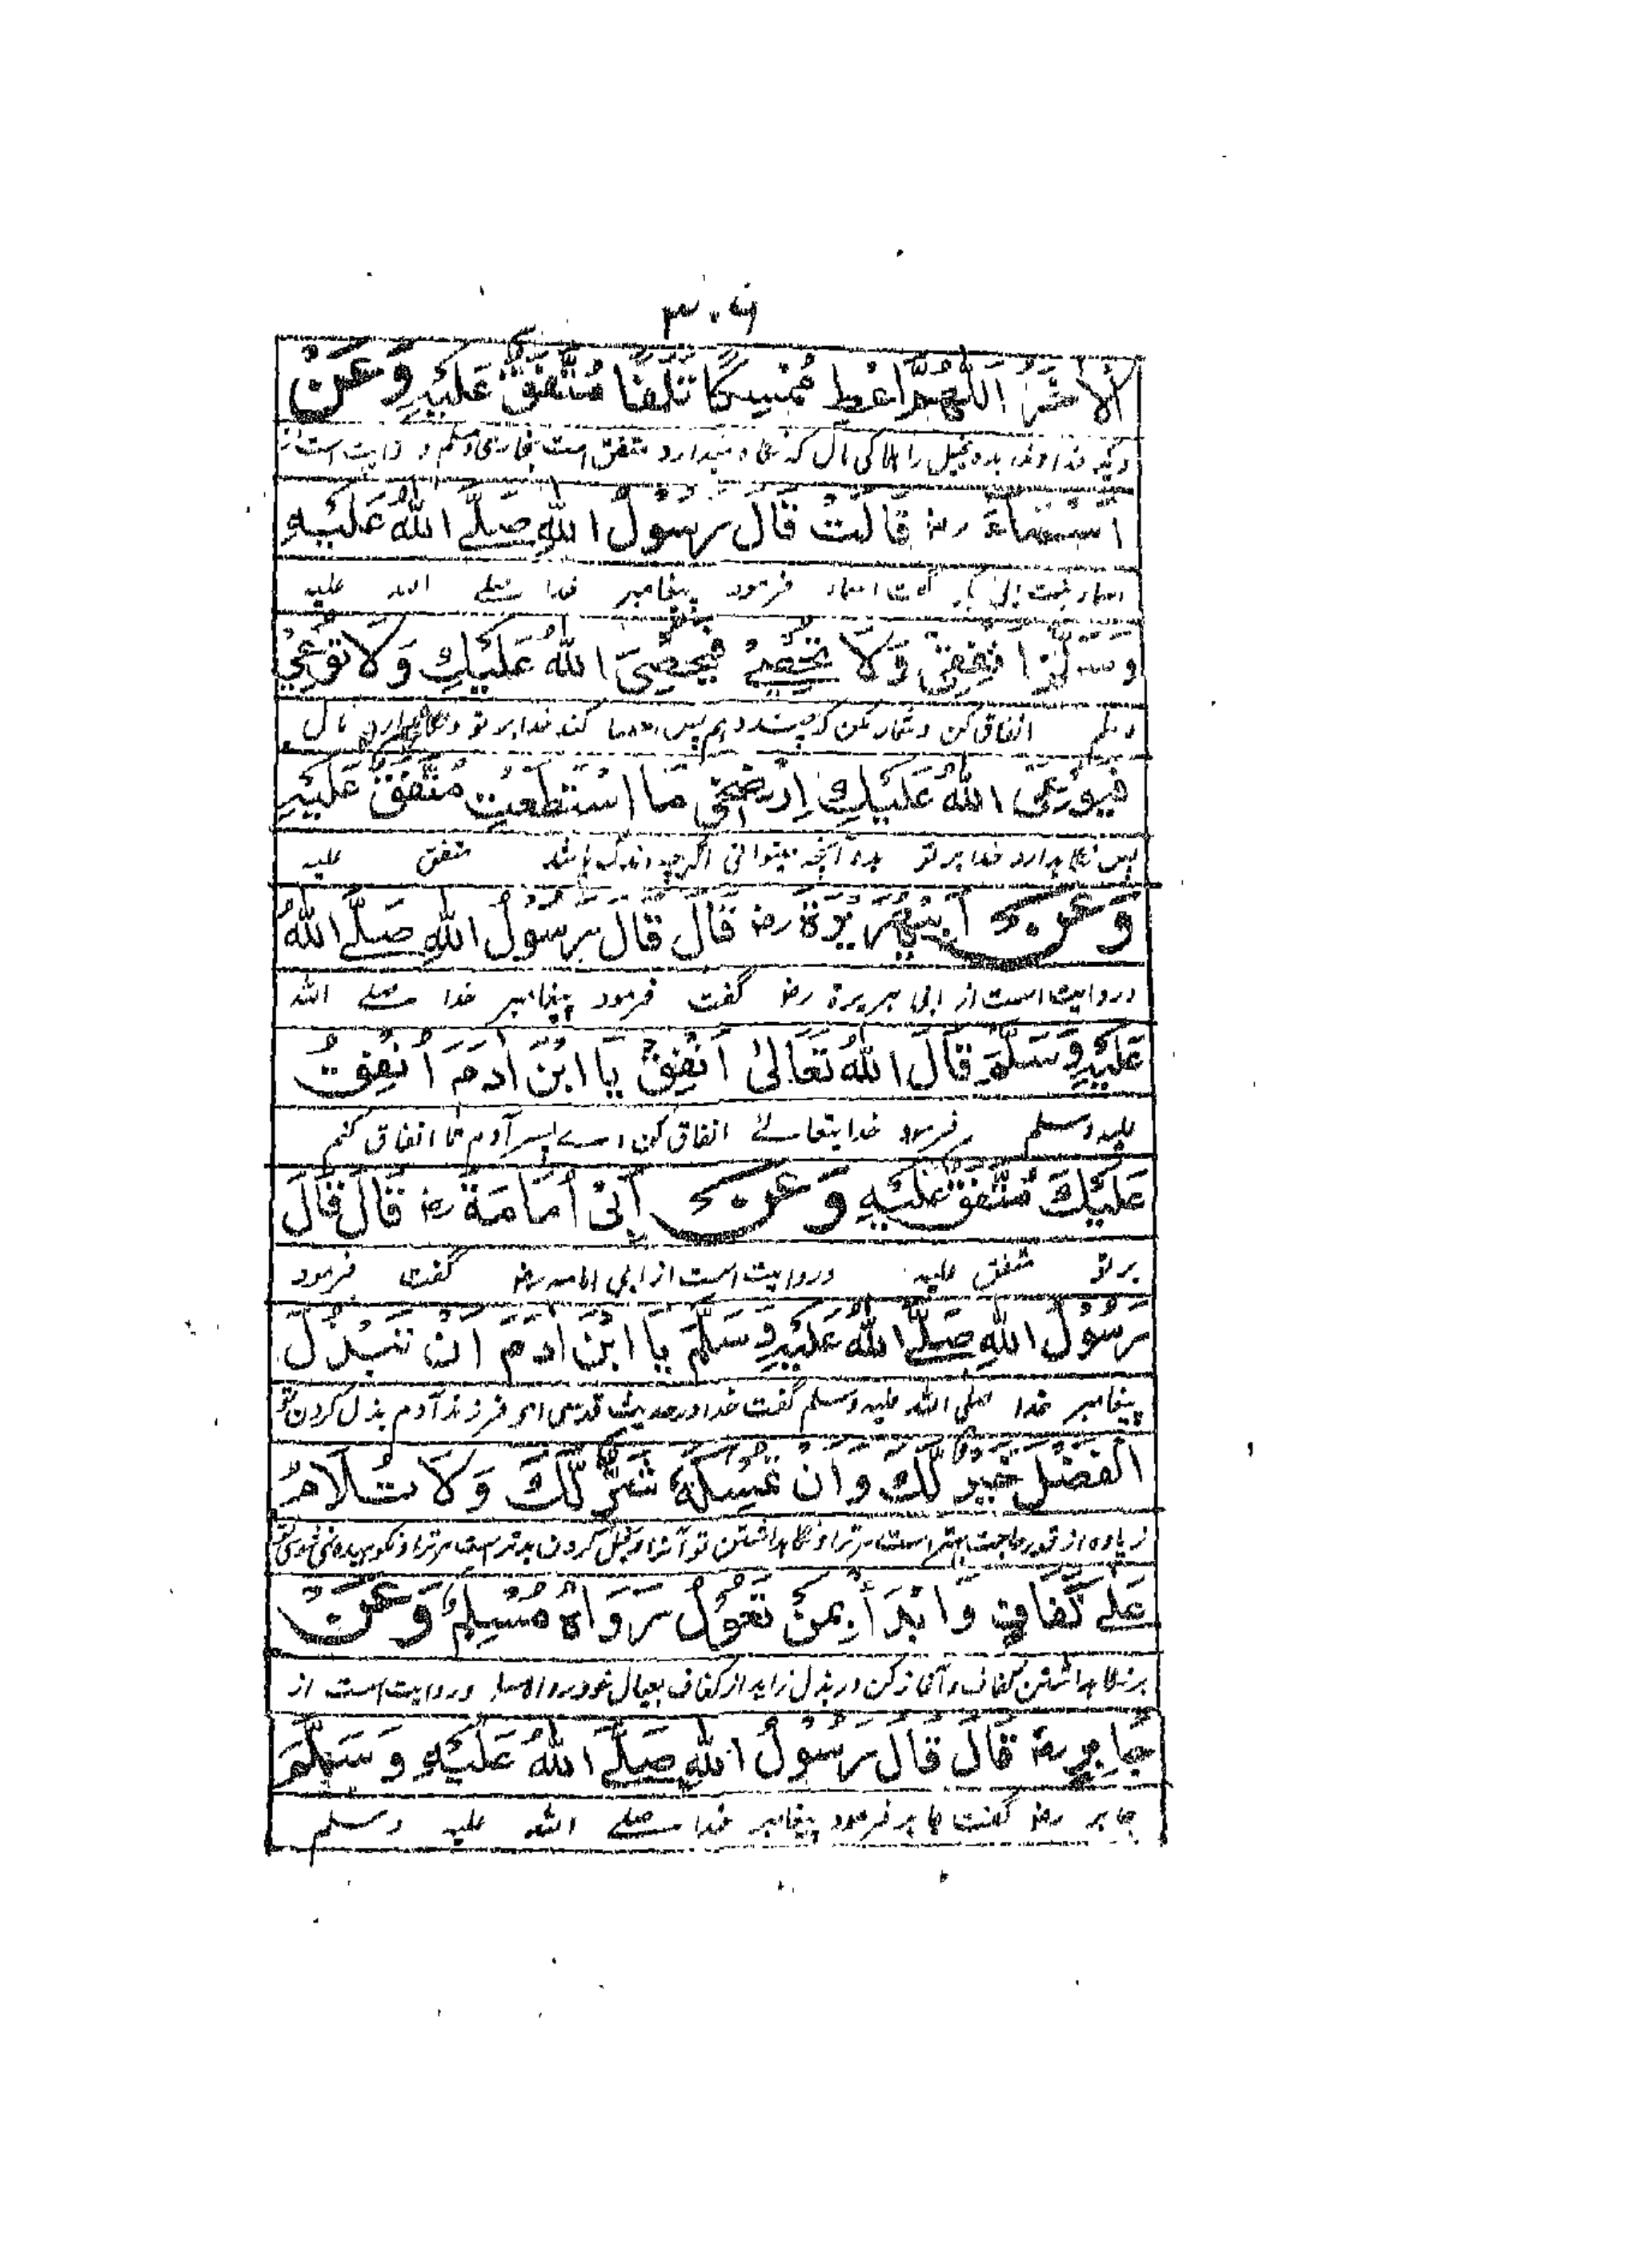 ۳۰۶
الْاٰخَرُ اَللّٰهُمَّ اَعْطِ مُمْسِكًا تَلَفًا مُتَّفَقٌ عَلَيْهِ وَعَنْ
بخیل را متفق است بخاری و مسلم و روایت است از
اَسْمَاءَ رض قَالَتْ قَالَ رَسُوْلُ اللّٰهِ صَلَّے اللّٰهُ عَلَيْهِ
فرمود پیغامبر خدا صلے الله علیه
وَسَلَّمَ اَنْفِقِيْ وَلَا تُحْصِيْ فَيُحْصِيَ اللّٰهُ عَلَيْكِ وَلَا تُوْعِيْ
وسلم انفاق کن و شمار مکن که چند دهم پس کند خدا بر تو مال
فَيُوْعِيَ اللّٰهُ عَلَيْكِ اِرْضَخِيْ مَا اسْتَطَعْتِ مُتَّفَقٌ عَلَيْهِ
پس نگاهدارد خدا بر تو بده آنچه میتوانی اگرچه اندک باشد متفق علیه
وَعَنْ اَبِيْهُرَيْرَةَ رض قَالَ قَالَ رَسُوْلُ اللّٰهِ صَلَّے اللّٰهُ
و روایت است از ابی هریرة رض گفت فرمود پیغامبر خدا صلے الله
عَلَيْهِ وَسَلَّمَ قَالَ اللّٰهُ تَعَالٰى اَنْفِقْ يَا ابْنَ اٰدَمَ اُنْفِقْ
علیه وسلم فرمود خدایتعالے انفاق کن اے پسر آدم تا انفاق کنم
عَلَيْكَ مُتَّفَقٌ عَلَيْهِ وَعَنْ اَبِيْ اُمَامَةَ رض قَالَ قَالَ
بر تو متفق علیه و روایت است از ابی امامه رض گفت فرمود
رَسُوْلُ اللّٰهِ صَلَّے اللّٰهُ عَلَيْهِ وَسَلَّمَ يَا ابْنَ اٰدَمَ اَنْ تَبْذُلَ
پیغامبر خدا صلی الله علیه وسلم گفت خدا در حدیث قدسی ای فرزند آدم بذل کردن تو
الْفَضْلَ خَيْرٌ لَّكَ وَاَنْ تُمْسِكَهٗ شَرٌّ لَّكَ وَلَا تُلَامُ
زیاده از قدر حاجت بهتر است مر ترا و نگاهداشتن تو آنرا و بخل کردن بدتر است مر ترا و نکوهیده نمی شوی تو
عَلٰے كَفَافٍ وَّابْدَأْ بِمَنْ تَعُوْلُ رَوَاهُ مُسْلِمٌ وَعَنْ
بر نگاهداشتن کفاف و آغاز کن در بذل زاید از کفاف بعیال خود رواه مسلم و روایت است از
جَابِرٍ رض قَالَ قَالَ رَسُوْلُ اللّٰهِ صَلَّے اللّٰهُ عَلَيْهِ وَسَلَّمَ
جابر رض گفت جابر فرمود پیغامبر خدا صلے الله علیه وسلم